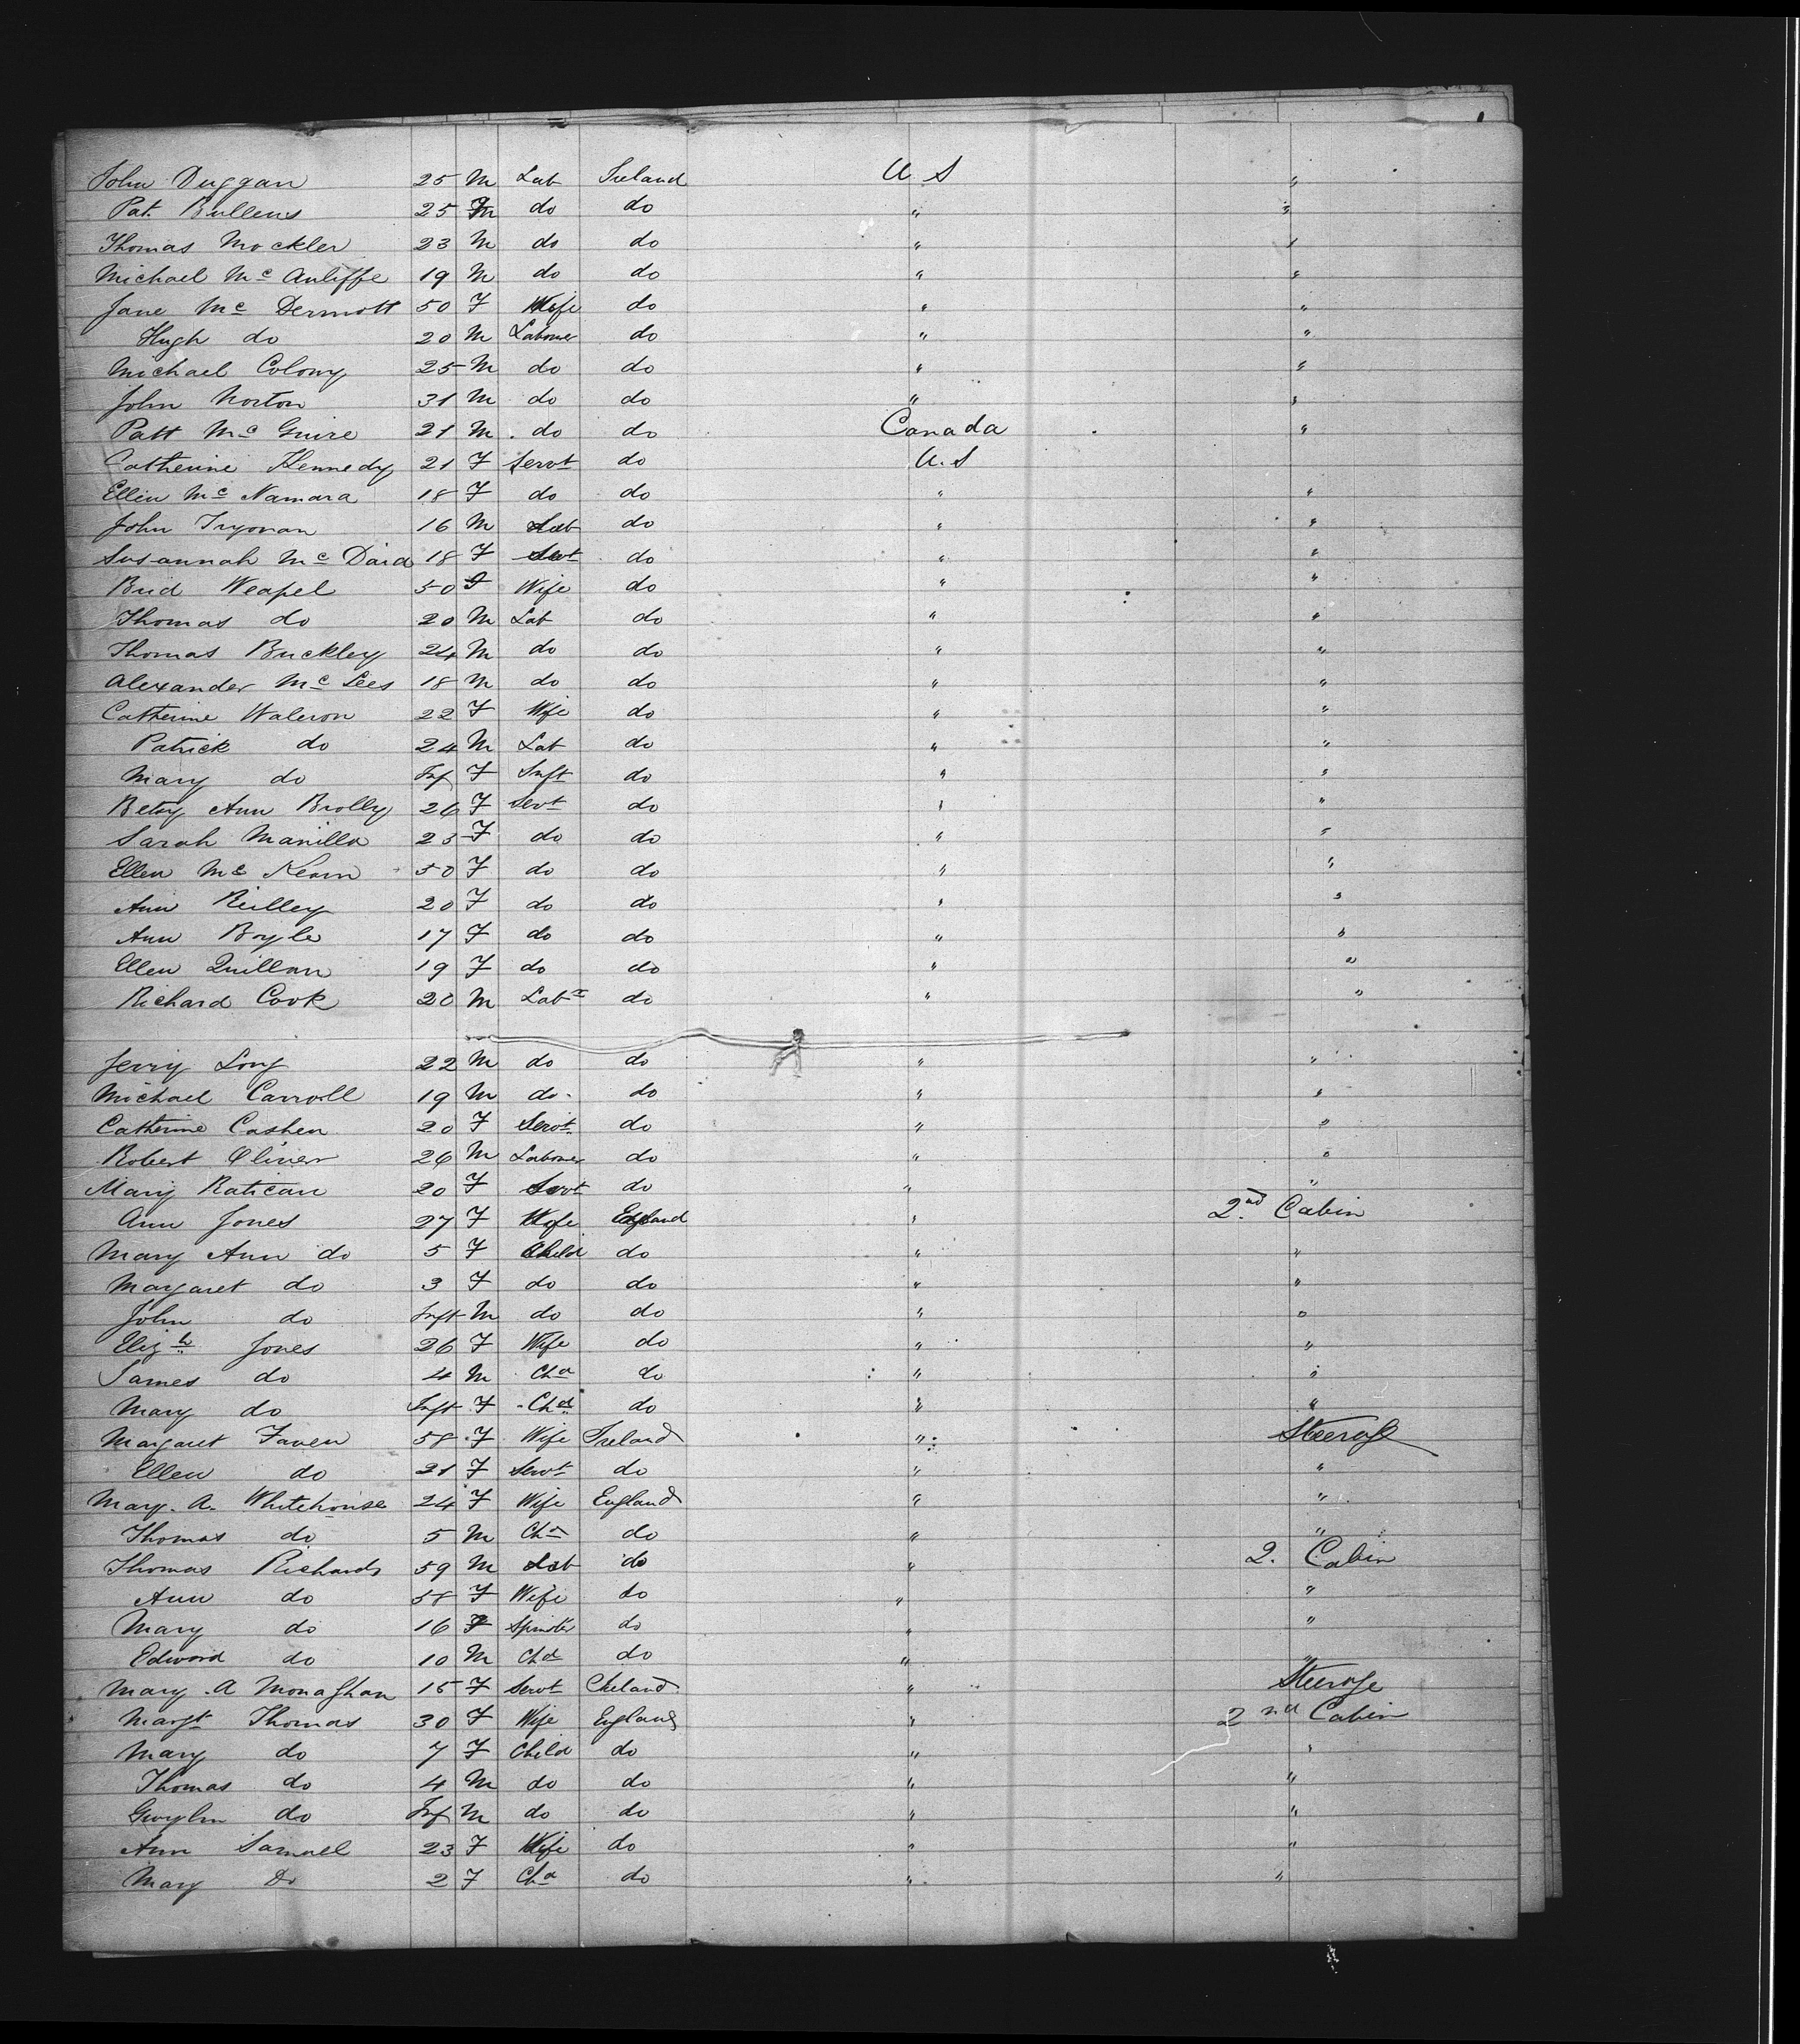 John Duggan 25 M Lab Ireland U S "
Pat. Bullens 25 M do do " "
Thomas Mockler 23 M do do " "
Michael Mc Auliffe 19 M do do " "
Jane Mc Dermott 50 F Wife do " "
Hugh do 20 M Labourer do " "
Michael Colony 25 M do do " "
John Norton 31 M do do " "
Patt Mc Guire 21 M do do Canada "
Catherine Kennedy 21 F Servt do U.S
Ellen Mc Namara 18 F do do " "
John 16 M Lab do " "
Susannah Mc Daid 18 F Servt do " "
Brid 50 F Wife do " "
Thomas do 20 M Lab do " "
Thomas Buckley 24 M do do " "
Alexander Mc Lees 18 M do do " "
Catherine Waleron 22 F Wife do " "
Patrick do 24 M Lab do " "
Mary do Inf F Inft do " "
Betsy Ann Brolly 26 F Servt do " "
Sarah Manilla 25 F do do " "
Ellen Mc Kearn 50 F do do " "
Ann Reilley 20 F do do " "
Ann Boyle 17 F do do " "
Ellen Quillan 19 F do do " "
Richard Cook 20 M Labr do " "
Jerry Long 22 M do do " "
Michael Carroll 19 M do do " "
Catherine Cashen 20 F Servt do " "
Robert Oliver 26 M Labourer do " "
Mary Ratican 20 F Servt do " "
Ann Jones 27 F Wife England " 2nd Cabin
Mary Ann do 5 F Child do " "
Margaret do 3 F do do " "
John do Inft M do do " "
Elizh Jones 26 F Wife do " "
James do 4 M Chd do " "
Mary do Inft F Chd do " "
Margaret Faven 58 F Wife Ireland " Steerage
Ellen do 21 F Servt do " "
Mary. A. Whitehouse 24 F Wife England " "
Thomas do 5 M Chd do " "
Thomas Richards 59 M Lab do " 2. Cabin
Ann do 58 F Wife do " "
Mary do 16 F Spinster do " "
Edward do 10 M Chd do " "
Mary. A Monaghan 15 F Servt Ireland " Steerage
Margt Thomas 30 F Wife England " 2nd Cabin
Mary do 7 F Child do " "
Thomas do 4 M do do " "
Gwylm do Inf M do do " "
Ann Samuell 23 F Wife do " "
Mary Do 2 F Chd do " "